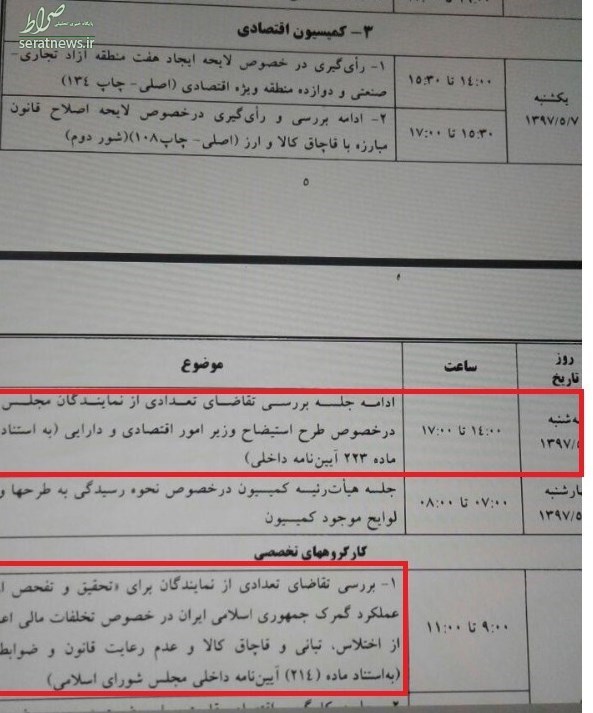 صراط
پایگاه خبری تحلیلی
seratnews.ir
۳- کمیسیون اقتصادی
یکشنبه
۱۳۹۷/۵/۷
۱۴:۰۰ تا ۱۵:۳۰
۱- رأی‌گیری در خصوص لایحه ایجاد هفت منطقه آزاد تجاری-
صنعتی و دوازده منطقه ویژه اقتصادی (اصلی- چاپ ۱۳۴)
۱۵:۳۰ تا ۱۷:۰۰
۲- ادامه بررسی و رأی‌گیری درخصوص لایحه اصلاح قانون
مبارزه با قاچاق کالا و ارز (اصلی- چاپ۱۰۸)(شور دوم)
۵
روز
تاریخ
ساعت
موضوع
ه‌شنبه
۱۳۹۷/۵
۱۴:۰۰ تا ۱۷:۰۰
ادامه جلسه بررسی تقاضای تعدادی از نمایندگان مجلس
درخصوص طرح استیضاح وزیر امور اقتصادی و دارایی (به استناد
ماده ۲۲۳ آیین‌نامه داخلی)
ارشنبه
۱۳۹۷/۵
۰۷:۰۰ تا ۰۸:۰۰
جلسه هیأت‌رئیسه کمیسیون درخصوص نحوه رسیدگی به طرحها و
لوایح موجود کمیسیون
کارگروههای تخصصی
۹:۰۰ تا ۱۱:۰۰
۱- بررسی تقاضای تعدادی از نمایندگان برای «تحقیق و تفحص از
عملکرد گمرک جمهوری اسلامی ایران در خصوص تخلفات مالی اعم
از اختلاس، تبانی و قاچاق کالا و عدم رعایت قانون و ضوابط
(به‌استناد ماده (۲۱۴) آیین‌نامه داخلی مجلس شورای اسلامی)